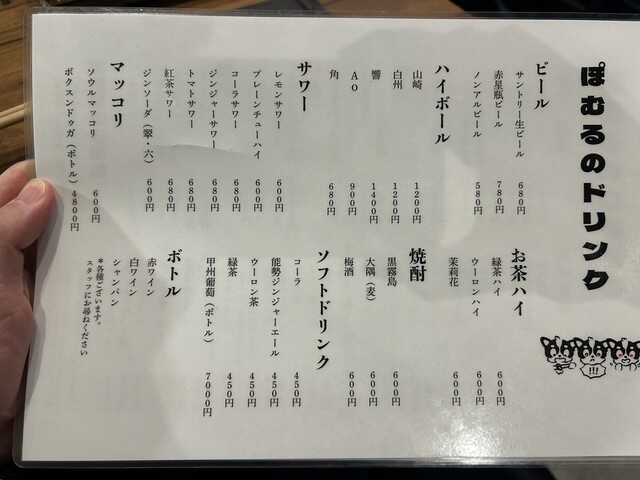 ぽむるのドリンク
ビール
サントリー生ビール 680円
赤星瓶ビール 780円
ノンアルビール 580円
ハイボール
山崎 1200円
白州 1200円
響 1400円
Ao 900円
角 680円
サワー
レモンサワー 600円
プレーンチューハイ 600円
コーラサワー 680円
ジンジャーサワー 680円
トマトサワー 680円
紅茶サワー 680円
ジンソーダ（翠・六） 600円
マッコリ
ソウルマッコリ 600円
ボクスンドゥガ（ボトル） 4800円
お茶ハイ
緑茶ハイ 600円
ウーロンハイ 600円
茉莉花 600円
焼酎
黒霧島 600円
大隅（麦） 600円
梅酒 600円
ソフトドリンク
コーラ 450円
能勢ジンジャーエール 450円
ウーロン茶 450円
緑茶 450円
甲州葡萄（ボトル） 7000円
ボトル
赤ワイン
白ワイン
シャンパン
＊各種ございます。
スタッフにお尋ねください
!!!